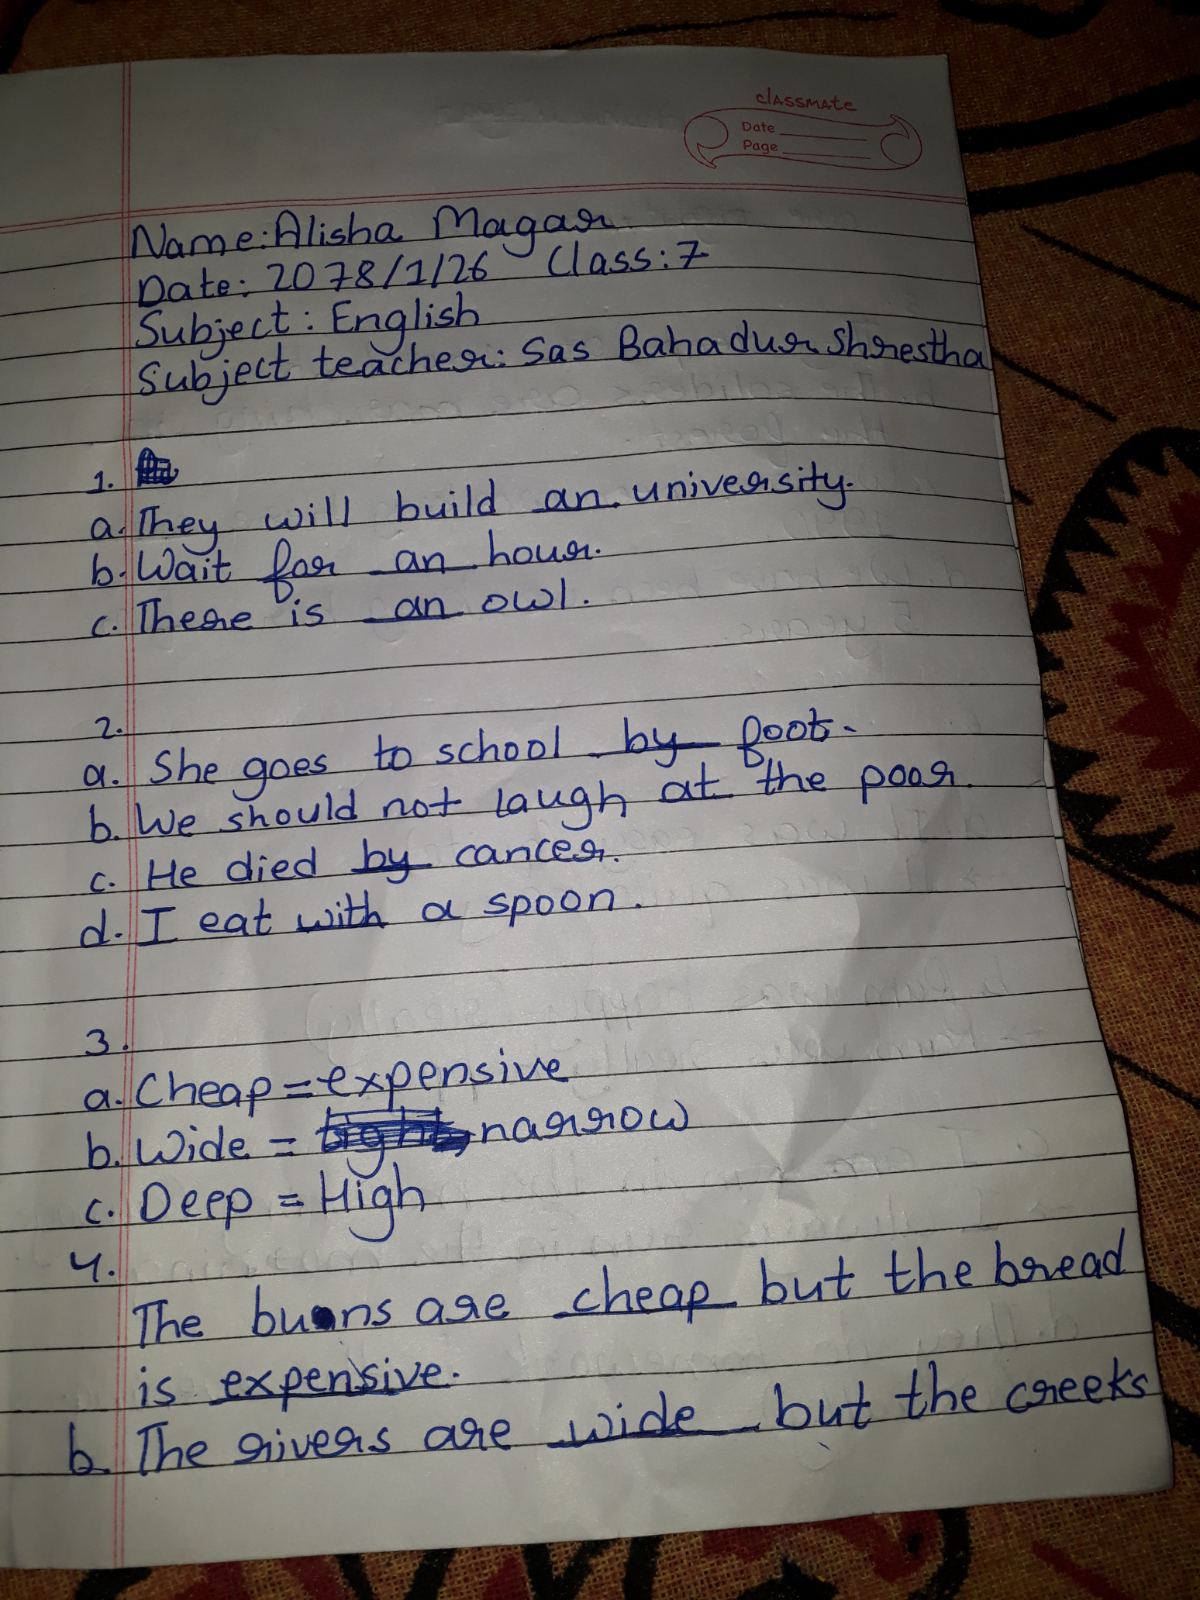 classmate
Date
Page
Name: Alisha Magar
Date: 2078/1/26 Class: 7
Subject: English
Subject teacher: Sas Bahadur Shrestha
1.
a. They will build an university.
b. Wait for an hour.
c. There is an owl.
2.
a. She goes to school by foot.
b. We should not laugh at the poor.
c. He died by cancer.
d. I eat with a spoon.
3.
a. Cheap = expensive
b. Wide = narrow
c. Deep = High
4.
The buns are cheap but the bread
is expensive.
b. The rivers are wide but the creeks